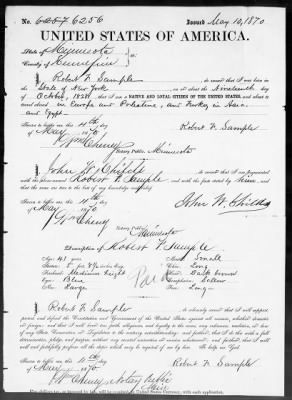 No. 6257 6256 Issued May 10, 1870
UNITED STATES OF AMERICA.
State of Minnesota
County of Hennepin
I, Robert F. Sample, do swear that I was born in
the State of New York, on or about the Nineteenth day
of October, 1828; that I am a NATIVE AND LOYAL CITIZEN OF THE UNITED STATES, and about to
travel abroad in Europe and Palestine, and Turkey in Asia
and Egypt
Sworn to before me this 4th day
of May 1870
Robert F. Sample
Wm Cheney
Notary Public, Minnesota
I, John W. Childs, do swear that I am acquainted
with the above-named Robert F. Sample, and with the facts stated by him, and
that the same are true to the best of my knowledge and belief.
Sworn to before me this 4th day
of May 1870
John W. Childs
Wm Cheney
Notary Public
Minnesota
Description of Robert F. Sample
Age: 41 years
Mouth: Small
Stature: 5 feet 8 1/2 inches, Eng.
Chin: Long
Forehead: Medium height
Hair: Dark brown
Eyes: Blue
Complexion: Sallow
Nose: Large
Face: Long
Paid
I, Robert F. Sample, do solemnly swear that I will support,
protect, and defend the Constitution and Government of the United States against all enemies, whether domestic
or foreign; and that I will bear true faith, allegiance, and loyalty to the same, any ordinance, resolution, or law
of any State Convention or Legislature to the contrary notwithstanding; and further, that I do this with a full
determination, pledge, and purpose, without any mental reservation or evasion whatsoever; and further, that I will
well and faithfully perform all the duties which may be required of me by law. So help me God.
Sworn to before me this 4th day
of May 1870
Robert F. Sample
Wm Cheney, Notary Public